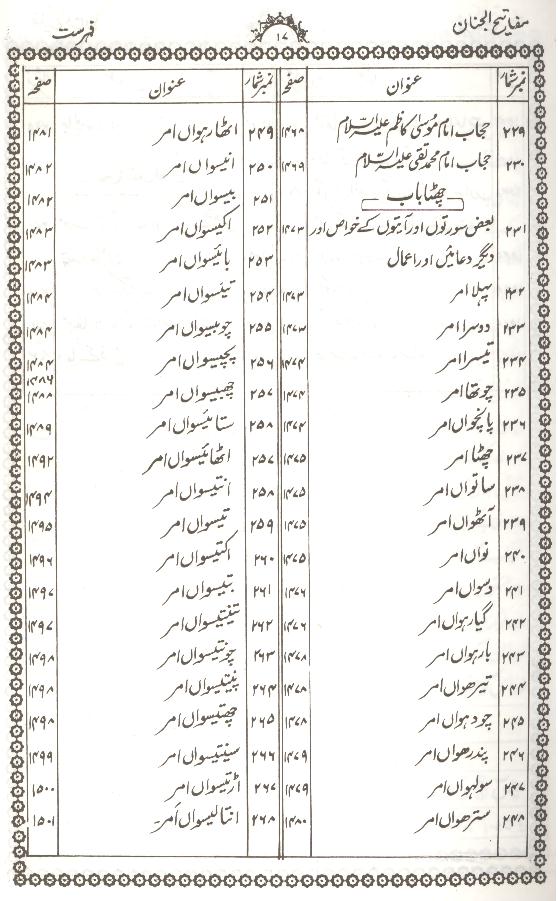 مفاتیح الجنان ۱۷ فہرست
نمبر شمار عنوان صفحہ
۲۲۹ حجاب امام موسیٰ کاظم علیہ السلام ۱۴۶۸
۲۳۰ حجاب امام محمد تقی علیہ السلام ۱۴۶۹
چھٹا باب
۲۳۱ بعض سورتوں اور آیتوں کے خواص اور ۱۴۷۳
دیگر دعائیں اور اعمال
۲۳۲ پہلا امر ۱۴۷۳
۲۳۳ دوسرا امر ۱۴۷۳
۲۳۴ تیسرا امر ۱۴۷۴
۲۳۵ چوتھا امر ۱۴۷۴
۲۳۶ پانچواں امر ۱۴۷۴
۲۳۷ چھٹا امر ۱۴۷۵
۲۳۸ ساتواں امر ۱۴۷۵
۲۳۹ آٹھواں امر ۱۴۷۵
۲۴۰ نواں امر ۱۴۷۵
۲۴۱ دسواں امر ۱۴۷۶
۲۴۲ گیارہواں امر ۱۴۷۶
۲۴۳ بارہواں امر ۱۴۷۸
۲۴۴ تیرھواں امر ۱۴۷۸
۲۴۵ چودہواں امر ۱۴۷۸
۲۴۶ پندرھواں امر ۱۴۷۹
۲۴۷ سولہواں امر ۱۴۷۹
۲۴۸ سترھواں امر ۱۴۸۰
نمبر شمار عنوان صفحہ
۲۴۹ اٹھارہواں امر ۱۴۸۱
۲۵۰ انیسواں امر ۱۴۸۲
۲۵۱ بیسواں امر ۱۴۸۲
۲۵۲ اکیسواں امر ۱۴۸۳
۲۵۳ بائیسواں امر ۱۴۸۳
۲۵۴ تیئسواں امر ۱۴۸۴
۲۵۵ چوبیسواں امر ۱۴۸۴
۲۵۶ پچیسواں امر ۱۴۸۴
۱۴۸۶
۲۵۷ چھبیسواں امر ۱۴۸۸
۲۵۸ ستائیسواں امر ۱۴۸۹
۲۵۷ اٹھائیسواں امر ۱۴۹۲
۲۵۸ انتیسواں امر ۱۴۹۴
۲۵۹ تیسواں امر ۱۴۹۵
۲۶۰ اکتیسواں امر ۱۴۹۶
۲۶۱ بتیسواں امر ۱۴۹۷
۲۶۲ تینتیسواں امر ۱۴۹۷
۲۶۳ چونتیسواں امر ۱۴۹۸
۲۶۴ پینتیسواں امر ۱۴۹۸
۲۶۵ چھتیسواں امر ۱۴۹۸
۲۶۶ سینتیسواں امر ۱۴۹۹
۲۶۷ اڑتیسواں امر ۱۵۰۰
۲۶۸ انتالیسواں اَمر۔ ۱۵۰۱